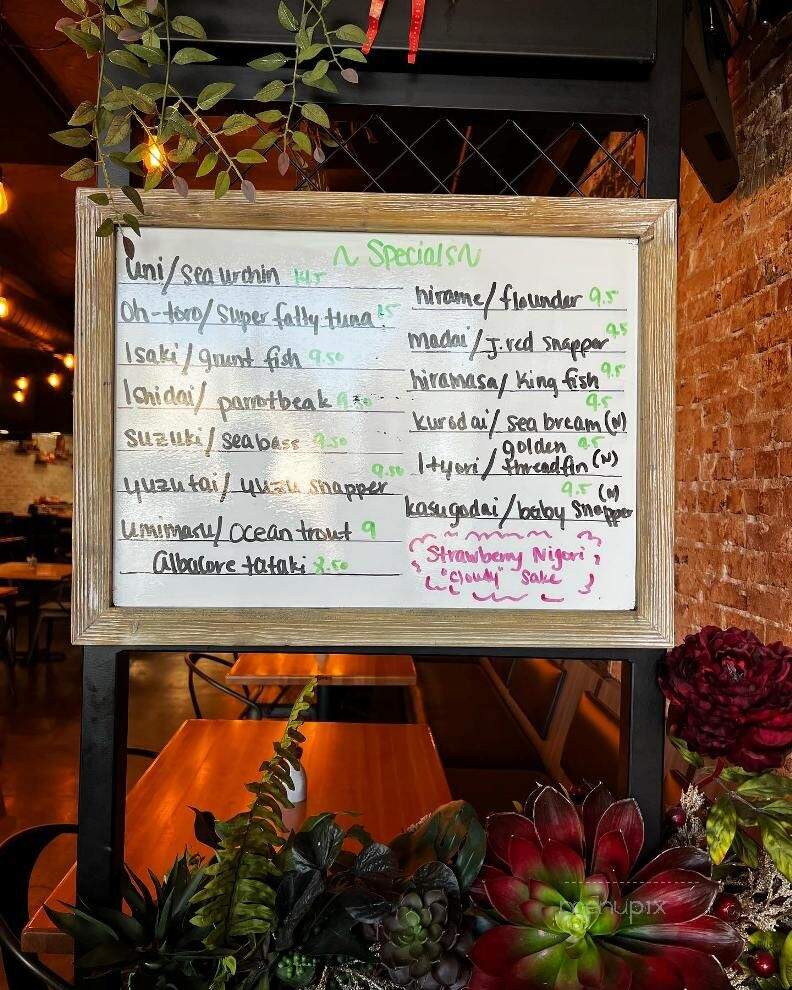 ~ Specials ~
uni/sea urchin 14.5
Oh-toro/super fatty tuna 15
Isaki/grunt fish 9.50
Ishidai/parrotbeak 9.50
suzuki/seabass 9.50
yuzutai/yuzu snapper 9.50
umimasu/ocean trout 9
Albacore tataki 8.50
hirame/flounder 9.5
madai/J.red snapper 9.5
hiramasa/King fish 9.5
kurodai/sea bream (N) 9.5
Ityori/golden threadfin (N) 9.5
kasugodai/baby snapper (N) 9.5
Strawberry Nigori
"cloudy" Sake
menupix